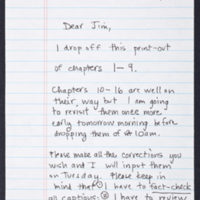 Dear Jim,
I drop off this print-out
of chapters 1-9.
Chapters 10-16 are well on
their way but I am going
to revisit them once more
early tomorrow morning before
dropping them off 10am.
Please make all the corrections you
wish and I will input them
on Tuesday. Please keep in
mind that ① I have to fact-check
all captions. ② I have to review